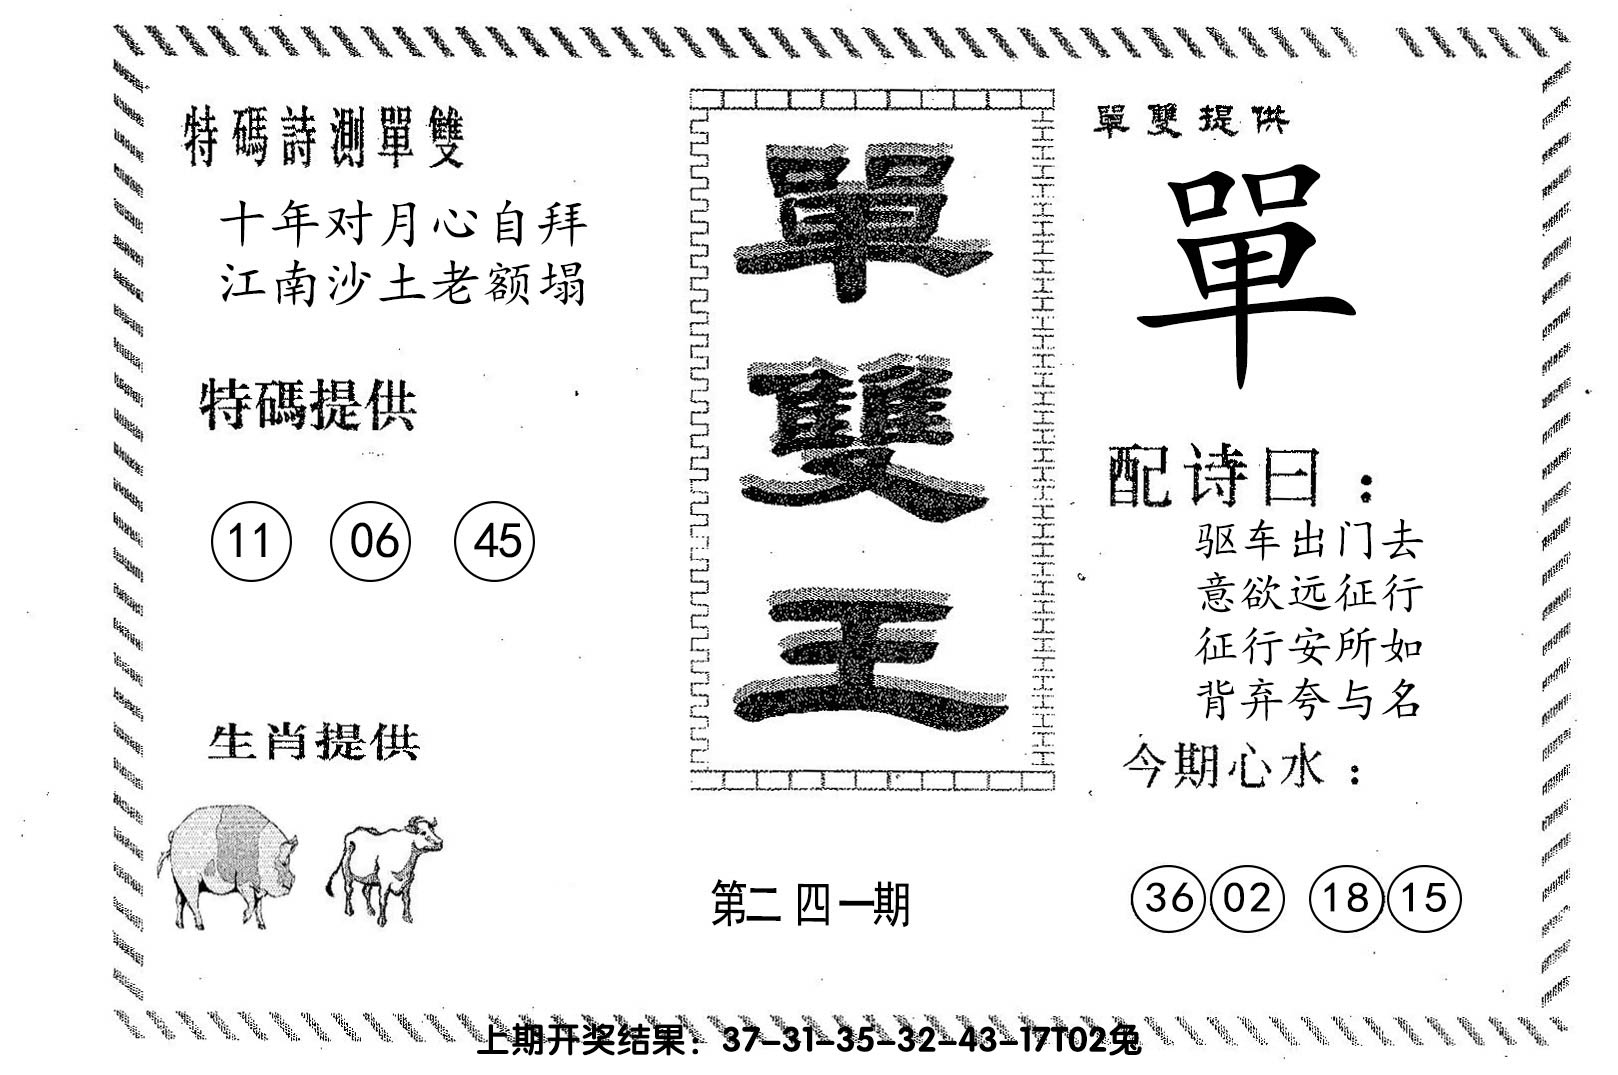 特碼詩測單雙
十年对月心自拜
江南沙土老额塌
特碼提供
11 06 45
生肖提供
單雙王
第二四一期
單雙提供
單
配诗曰：
驱车出门去
意欲远征行
征行安所如
背弃夸与名
今期心水：
36 02 18 15
上期开奖结果：37-31-35-32-43-17T02兔